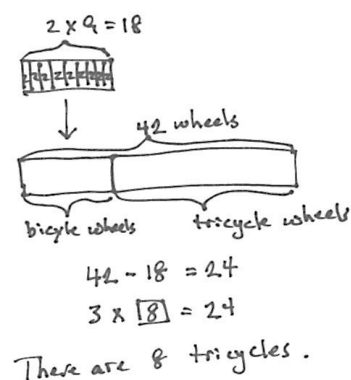 2 × 9 = 18
2 2 2 2 2 2 2 2 2
42 wheels
bicycle wheels
tricycle wheels
42 - 18 = 24
3 × 8 = 24
There are 8 tricycles.